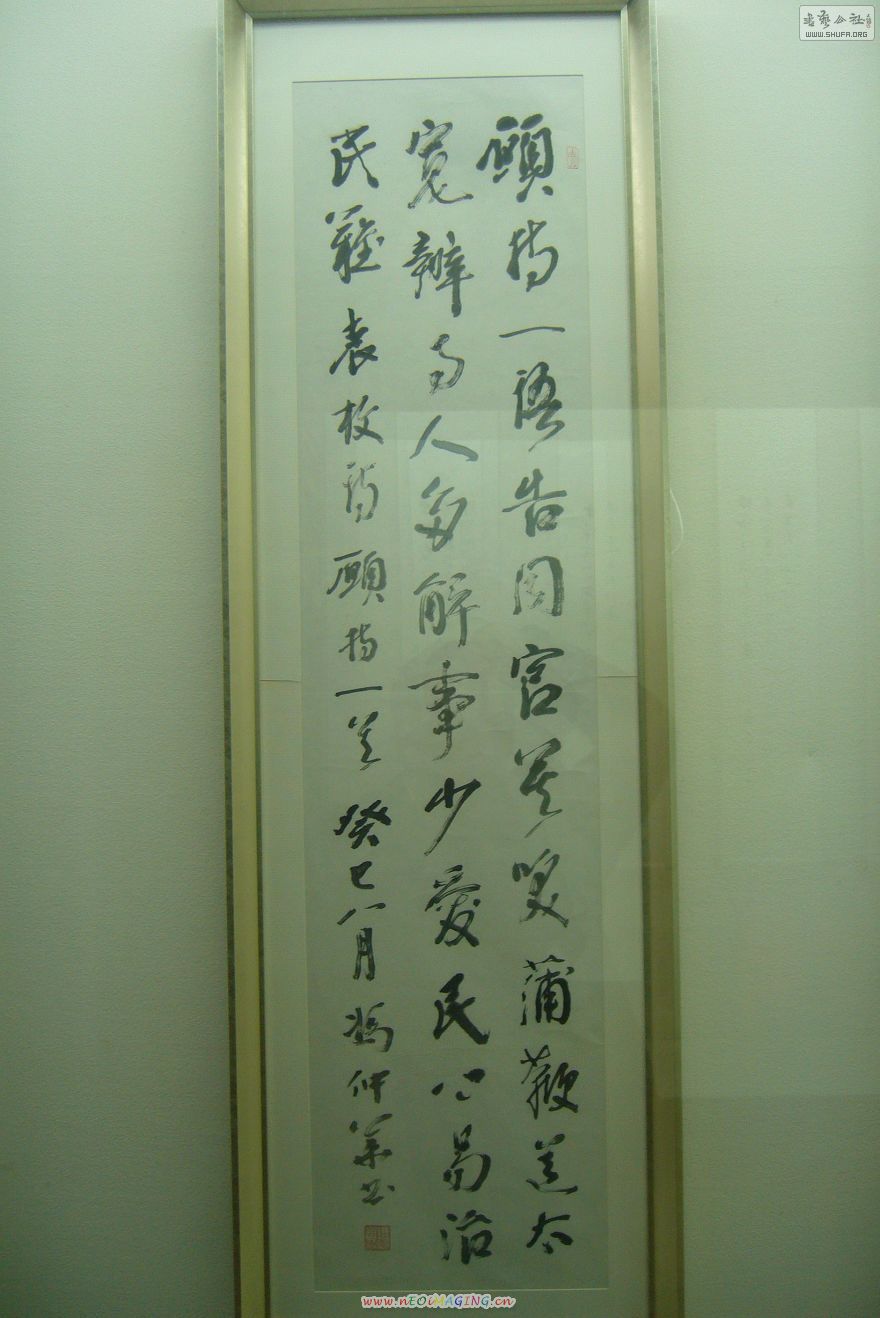 願持一語告同官莫笑蒲鞭道太
寬辦事人多解事少愛民心易治
民難袁枚詩願持一首癸巳八月馮仲華書
書藝公社
WWW.SHUFA.ORG
www.nEOiMAGING.cn